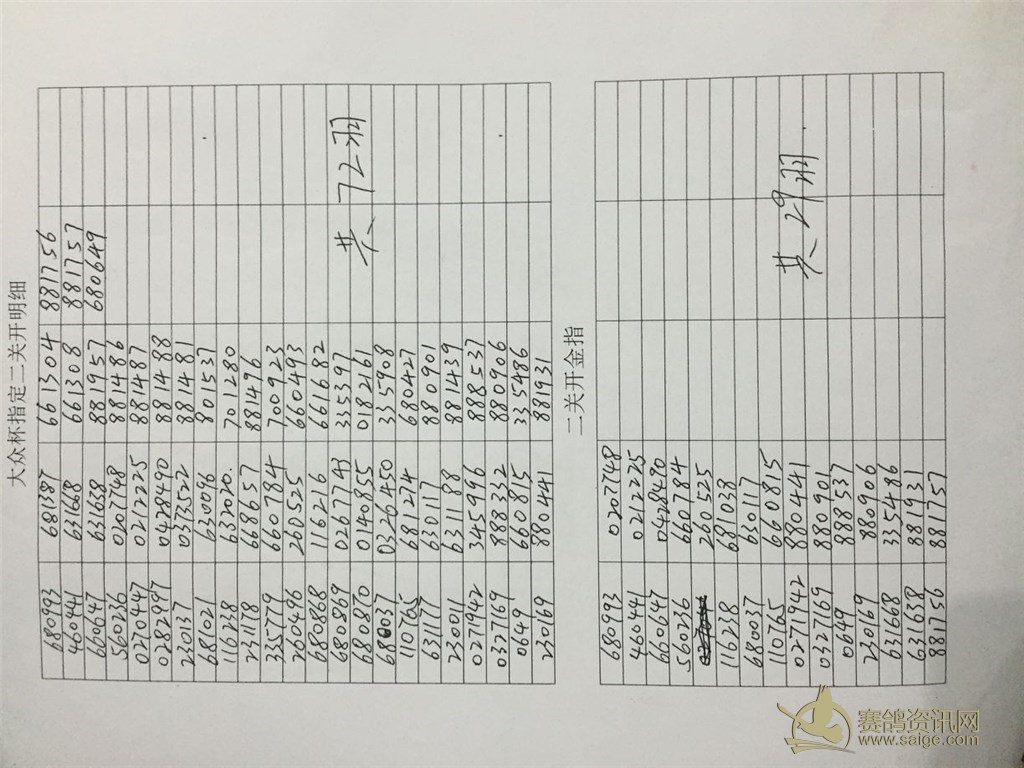 大众杯指定二关开明细
680993 681387 661304 881756
460441 631668 661308 881757
660647 631638 881957 680649
560236 0207748 881486
0270447 0212225 881487
0282997 0428490 881488
23017 0373522 881481
681021 630096 801537
116238 632020. 701280
231178 668657 881496
335779 660784 700923
260496 260525 660493
680868 116216 661682
680869 0267743 335397
680870 0140855 018261 共72羽
680037 0326450 335908
110765 681274 680427
631177 630117 880901
230011 631188 881439
0271942 345996 888537
0327169 888332 880906
0649 660815 335486
230169 880441 881931
二关开金指
680993 0207748
460441 0212225
660647 0428490
560236 660784
260525
116238 681038
680037 630117
110765 660815
0271942 880441 共29羽.
0327169 880901
0649 888537
230169 880906
631668 335486
631638 881931
881756 881757
赛鸽资讯网
www.saige.com